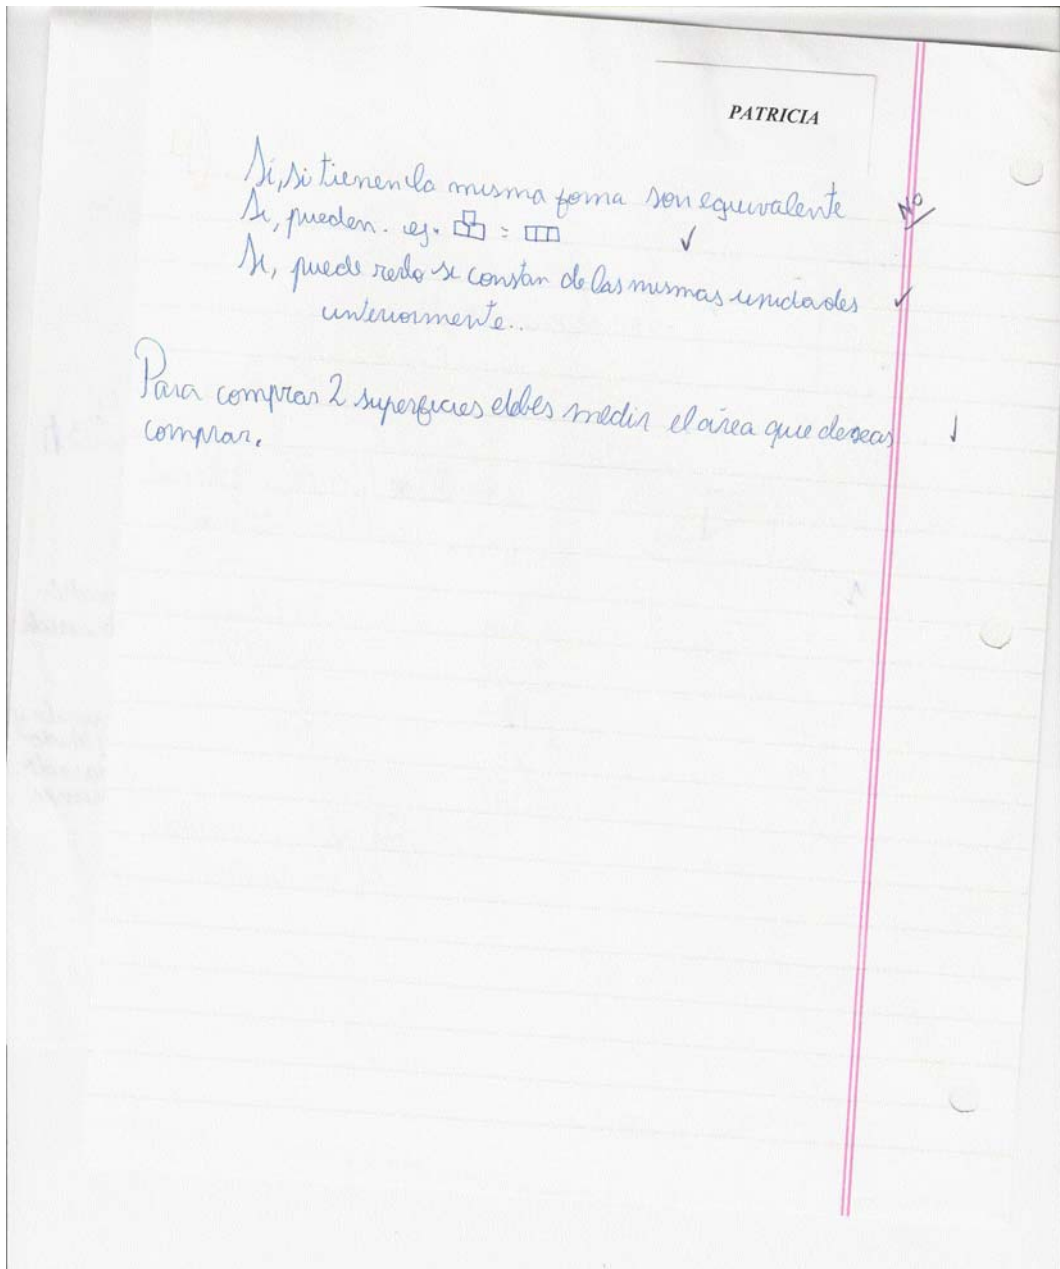 PATRICIA
Si, si tienen la misma forma son equivalente No
Si, pueden. ej. = ✓
Si, puede serlo si constan de las mismas unidades ✓
anteriormente..
Para comprar 2 superficies debes medir el área que deseas
comprar.